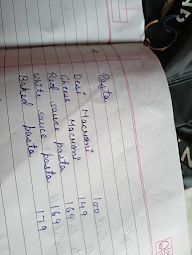 Pasta
Desi Macroni 100
Cheese Macroni 149
Red sauce pasta 169
White sauce pasta 169
Baked pasta 179